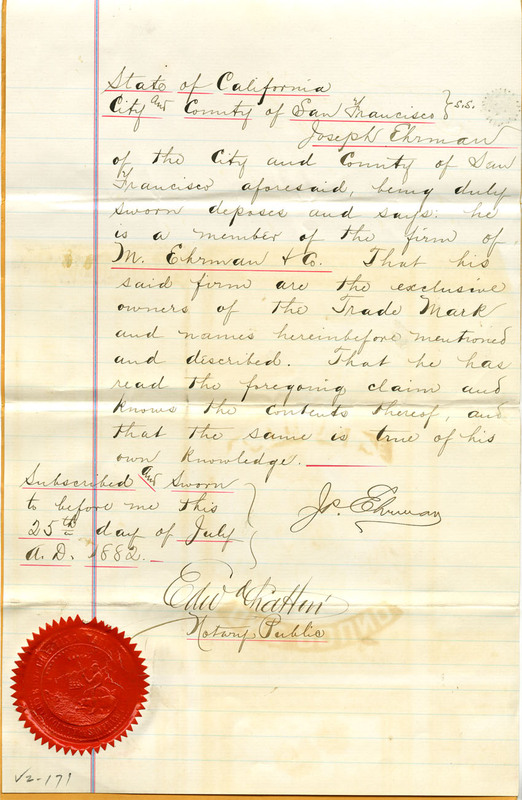 State of California
City and County of San Francisco } s.s.
Joseph Ehrman
of the City and County of San
Francisco aforesaid, being duly
sworn deposes and says: he
is a member of the firm of
M. Ehrman & Co. That his
said firm are the exclusive
owners of the Trade Mark
and names hereinbefore mentioned
and described. That he has
read the foregoing claim and
knows the contents thereof, and
that the same is true of his
own knowledge.
Subscribed and Sworn
to before me this
25th day of July
A.D. 1882.
Jos. Ehrman
Edw
Notary Public
V2-171